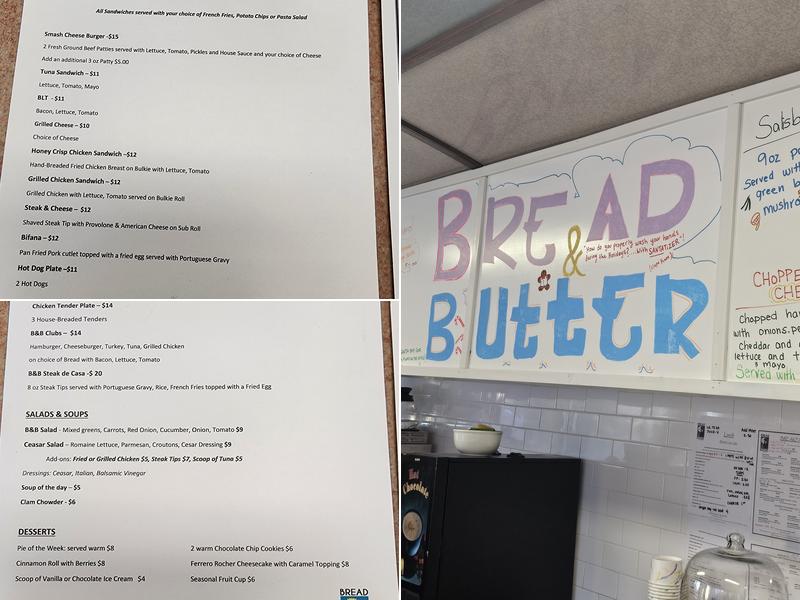 All Sandwiches served with your choice of French Fries, Potato Chips or Pasta Salad
Smash Cheese Burger -$15
2 Fresh Ground Beef Patties served with Lettuce, Tomato, Pickles and House Sauce and your choice of Cheese
Add an additional 3 oz Patty $5.00
Tuna Sandwich – $11
Lettuce, Tomato, Mayo
BLT - $11
Bacon, Lettuce, Tomato
Grilled Cheese – $10
Choice of Cheese
Honey Crisp Chicken Sandwich –$12
Hand-Breaded Fried Chicken Breast on Bulkie with Lettuce, Tomato
Grilled Chicken Sandwich – $12
Grilled Chicken with Lettuce, Tomato served on Bulkie Roll
Steak & Cheese – $12
Shaved Steak Tip with Provolone & American Cheese on Sub Roll
Bifana – $12
Pan Fried Pork cutlet topped with a fried egg served with Portuguese Gravy
Hot Dog Plate –$11
2 Hot Dogs
Chicken Tender Plate – $14
3 House-Breaded Tenders
B&B Clubs – $14
Hamburger, Cheeseburger, Turkey, Tuna, Grilled Chicken
on choice of Bread with Bacon, Lettuce, Tomato
B&B Steak de Casa -$ 20
8 oz Steak Tips served with Portuguese Gravy, Rice, French Fries topped with a Fried Egg
SALADS & SOUPS
B&B Salad - Mixed greens, Carrots, Red Onion, Cucumber, Onion, Tomato $9
Ceasar Salad – Romaine Lettuce, Parmesan, Croutons, Cesar Dressing $9
Add-ons: Fried or Grilled Chicken $5, Steak Tips $7, Scoop of Tuna $5
Dressings: Ceasar, Italian, Balsamic Vinegar
Soup of the day – $5
Clam Chowder - $6
DESSERTS
Pie of the Week: served warm $8
2 warm Chocolate Chip Cookies $6
Cinnamon Roll with Berries $8
Ferrero Rocher Cheesecake with Caramel Topping $8
Scoop of Vanilla or Chocolate Ice Cream $4
Seasonal Fruit Cup $6
BREAD
BREAD
&
"How do you properly wash your hands
during the Holidays?...With SANTATIZER"!
BUttER
9oz
Served with
green
mushro
CHOPPE
CHE
Chopped ham
with onions, pe
Cheddar and
lettuce and t
mayo
Served with
Hot
Chocolate